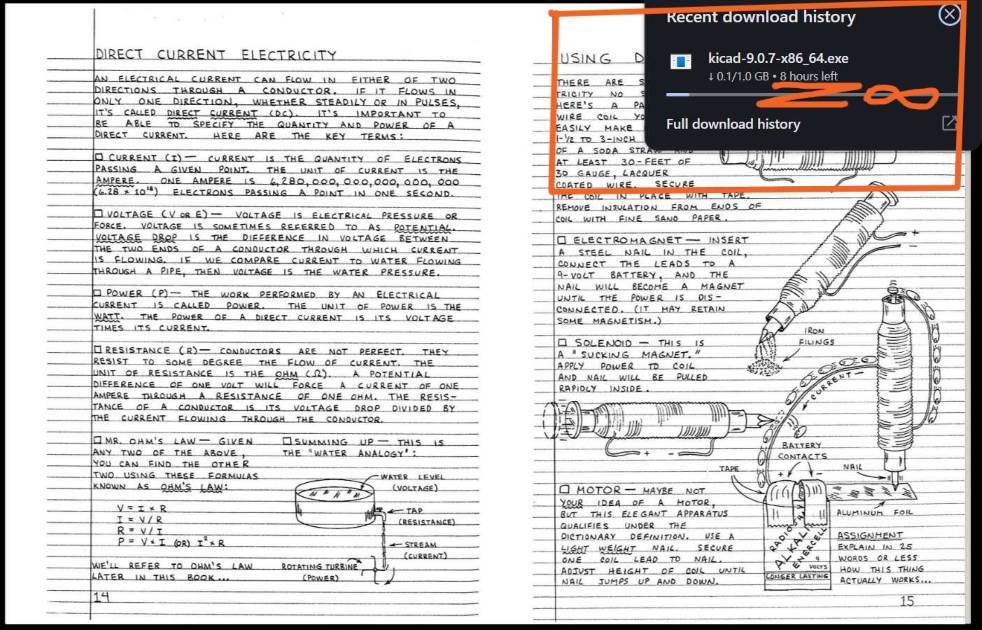 DIRECT CURRENT ELECTRICITY
AN ELECTRICAL CURRENT CAN FLOW IN EITHER OF TWO
DIRECTIONS THROUGH A CONDUCTOR. IF IT FLOWS IN
ONLY ONE DIRECTION, WHETHER STEADILY OR IN PULSES,
IT'S CALLED DIRECT CURRENT (DC). IT'S IMPORTANT TO
BE ABLE TO SPECIFY THE QUANTITY AND POWER OF A
DIRECT CURRENT. HERE ARE THE KEY TERMS:
□ CURRENT (I) — CURRENT IS THE QUANTITY OF ELECTRONS
PASSING A GIVEN POINT. THE UNIT OF CURRENT IS THE
AMPERE. ONE AMPERE IS 6,280,000,000,000,000,000
(6.28 × 10¹⁸) ELECTRONS PASSING A POINT IN ONE SECOND.
□ VOLTAGE (V OR E) — VOLTAGE IS ELECTRICAL PRESSURE OR
FORCE. VOLTAGE IS SOMETIMES REFERRED TO AS POTENTIAL.
VOLTAGE DROP IS THE DIFFERENCE IN VOLTAGE BETWEEN
THE TWO ENDS OF A CONDUCTOR THROUGH WHICH CURRENT
IS FLOWING. IF WE COMPARE CURRENT TO WATER FLOWING
THROUGH A PIPE, THEN VOLTAGE IS THE WATER PRESSURE.
□ POWER (P) — THE WORK PERFORMED BY AN ELECTRICAL
CURRENT IS CALLED POWER. THE UNIT OF POWER IS THE
WATT. THE POWER OF A DIRECT CURRENT IS ITS VOLTAGE
TIMES ITS CURRENT.
□ RESISTANCE (R) — CONDUCTORS ARE NOT PERFECT. THEY
RESIST TO SOME DEGREE THE FLOW OF CURRENT. THE
UNIT OF RESISTANCE IS THE OHM (Ω). A POTENTIAL
DIFFERENCE OF ONE VOLT WILL FORCE A CURRENT OF ONE
AMPERE THROUGH A RESISTANCE OF ONE OHM. THE RESIS-
TANCE OF A CONDUCTOR IS ITS VOLTAGE DROP DIVIDED BY
THE CURRENT FLOWING THROUGH THE CONDUCTOR.
□ MR. OHM'S LAW — GIVEN
ANY TWO OF THE ABOVE,
YOU CAN FIND THE OTHER
TWO USING THESE FORMULAS
KNOWN AS OHM'S LAW:
V = I × R
I = V/R
R = V/I
P = V × I (OR) I² × R
WE'LL REFER TO OHM'S LAW
LATER IN THIS BOOK ...
□ SUMMING UP — THIS IS
THE "WATER ANALOGY":
WATER LEVEL
(VOLTAGE)
TAP
(RESISTANCE)
STREAM
(CURRENT)
ROTATING TURBINE
(POWER)
14
Recent download history
kicad-9.0.7-x86_64.exe
↓ 0.1/1.0 GB • 8 hours left
Full download history
USING D
THERE ARE S
TRICITY NO S
HERE'S A PA
WIRE COIL YO
EASILY MAKE
1-½ TO 3-INCH
OF A SODA STRAW
AT LEAST 30-FEET OF
30 GAUGE, LACQUER
COATED WIRE. SECURE
THE COIL IN PLACE WITH TAPE.
REMOVE INSULATION FROM ENDS OF
COIL WITH FINE SAND PAPER.
□ ELECTROMAGNET — INSERT
A STEEL NAIL IN THE COIL,
CONNECT THE LEADS TO A
9-VOLT BATTERY, AND THE
NAIL WILL BECOME A MAGNET
UNTIL THE POWER IS DIS-
CONNECTED. (IT MAY RETAIN
SOME MAGNETISM.)
+
−
IRON
FILINGS
□ SOLENOID — THIS IS
A "SUCKING MAGNET."
APPLY POWER TO COIL
AND NAIL WILL BE PULLED
RAPIDLY INSIDE.
+ −
CURRENT
BATTERY
CONTACTS
TAPE
+ −
NAIL
ALUMINUM FOIL
□ MOTOR — MAYBE NOT
YOUR IDEA OF A MOTOR,
BUT THIS ELEGANT APPARATUS
QUALIFIES UNDER THE
DICTIONARY DEFINITION. USE A
LIGHT WEIGHT NAIL. SECURE
ONE COIL LEAD TO NAIL.
ADJUST HEIGHT OF COIL UNTIL
NAIL JUMPS UP AND DOWN.
ENERCELL
9
VOLTS
LONGER LASTING
ASSIGNMENT
EXPLAIN IN 25
WORDS OR LESS
HOW THIS THING
ACTUALLY WORKS...
15